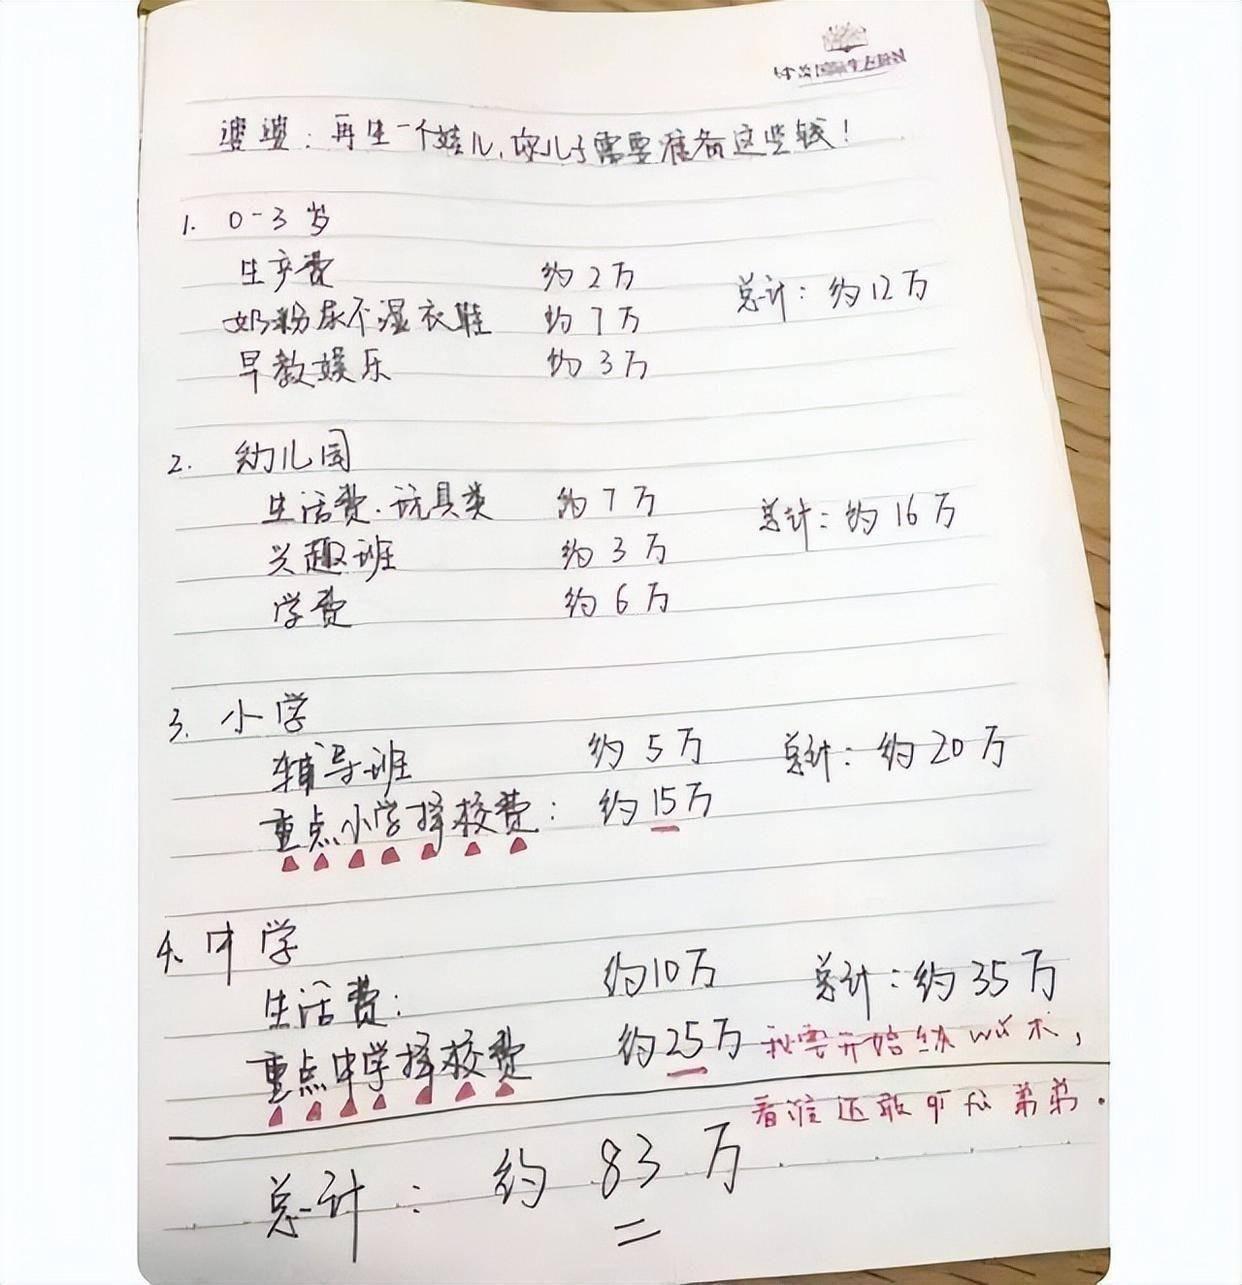 婆婆：再生一个娃儿，你儿子需要准备这些钱！
1. 0-3岁
生产费 约2万 总计：约12万
奶粉尿不湿衣鞋 约7万
早教娱乐 约3万
2. 幼儿园
生活费.玩具类 约7万 总计：约16万
兴趣班 约3万
学费 约6万
3. 小学
辅导班 约5万 总计：约20万
重点小学择校费： 约15万
4. 中学
生活费： 约10万 总计：约35万
重点中学择校费 约25万 我要开始练wǔ术，
看谁还敢qī fù弟弟.
总计： 约83万